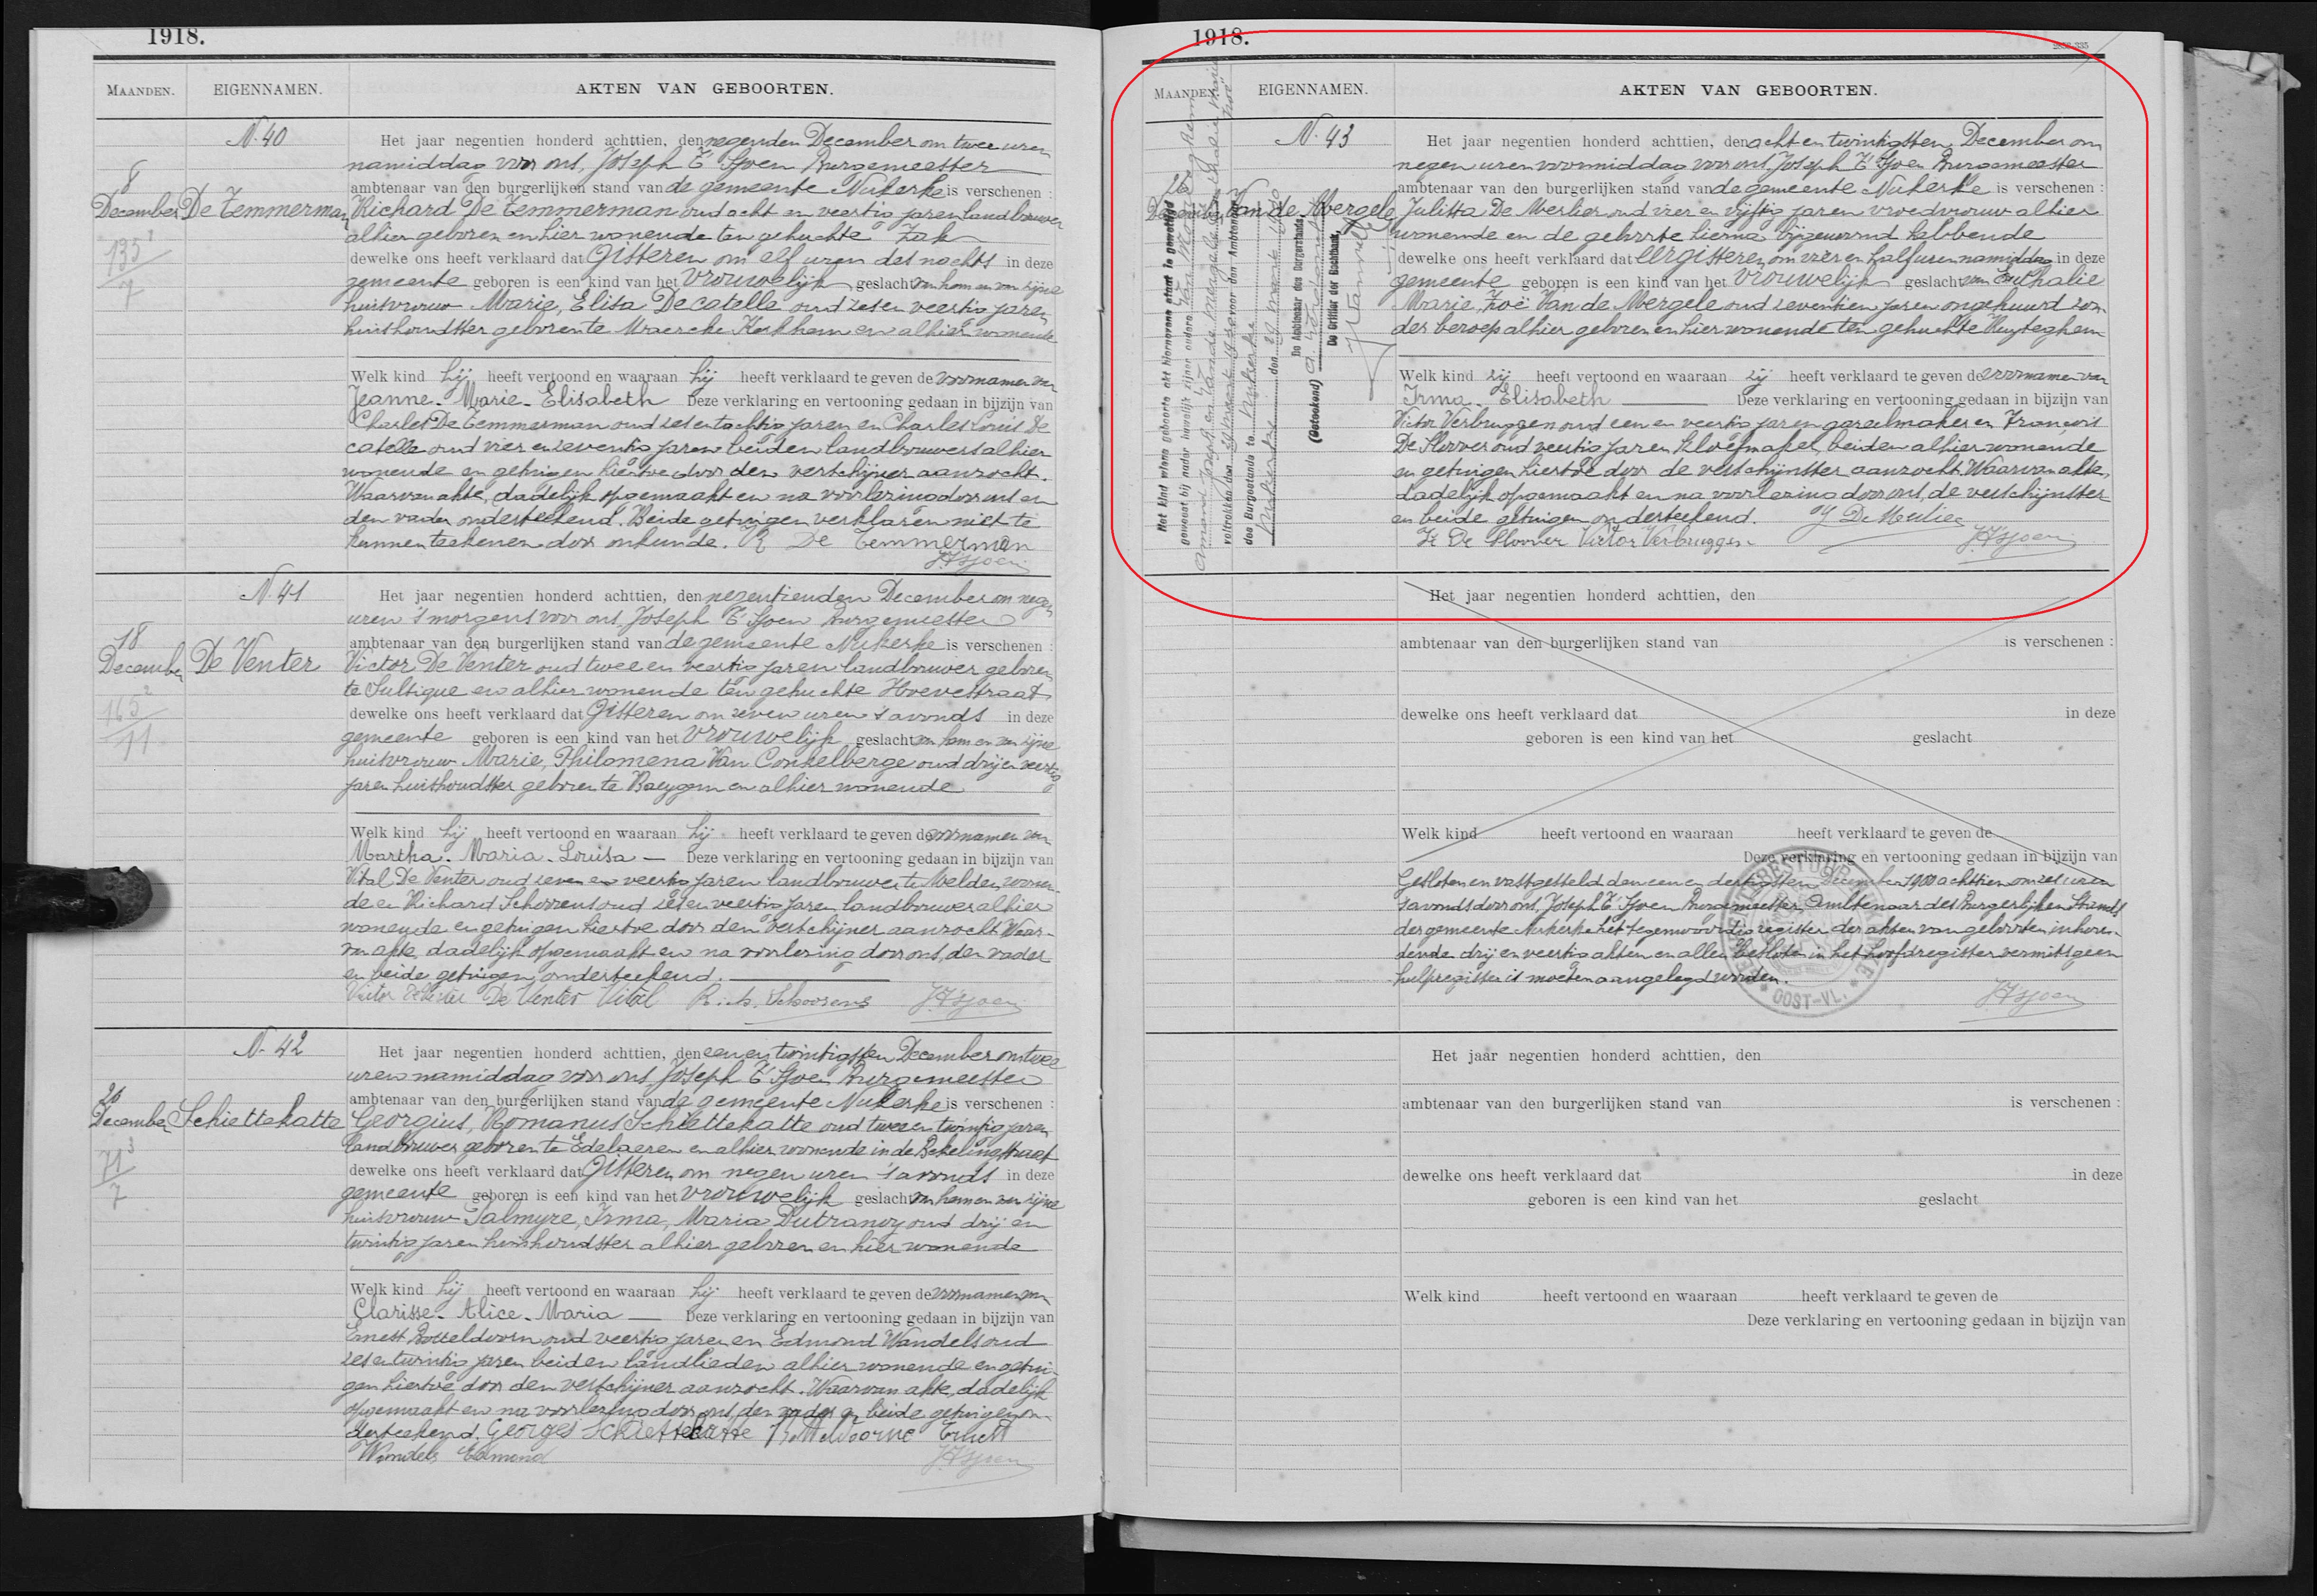 1918.
MAANDEN.
EIGENNAMEN.
AKTEN VAN GEBOORTEN.
N. 40
8
December
De Temmerman
Het jaar negentien honderd achttien, den negenden December om twee uren
namiddag voor ons, Joseph T'Sjoen Burgemeester
ambtenaar van den burgerlijken stand van de gemeente Nukerke is verschenen :
Richard De Temmerman oud acht en veertig jaren landbouwer
alhier geboren en hier wonende ten gehuchte Zak
dewelke ons heeft verklaard dat Gisteren om elf uren des nachts in deze
gemeente geboren is een kind van het vrouwelijk geslacht van hem en van zijne
huisvrouw Marie, Elisa Decatelle oud zes en veertig jaren
huishoudster geboren te Maercke Kerkhem en alhier wonende
Welk kind hij heeft vertoond en waaraan hij heeft verklaard te geven de voornamen van
Jeanne-Marie-Elisabeth Deze verklaring en vertooning gedaan in bijzijn van
Charles De Temmerman oud zes en tachtig jaren en Charles Louis De
catelle oud vier en zeventig jaren beiden landbouwers alhier
wonende en getuigen hiertoe door den verschijner aanzocht.
Waarvan akte, dadelijk opgemaakt en na voorlezing door ons en
den vader onderteekend. Beide getuigen verklaren niet te
kunnen teekenen door onkunde. R De Temmerman
J. T'Sjoen
N. 41
18
December
De Venter
Het jaar negentien honderd achttien, den negentienden December om negen
uren 's morgens voor ons, Joseph T'Sjoen Burgemeester
ambtenaar van den burgerlijken stand van de gemeente Nukerke is verschenen :
Victor De Venter oud twee en veertig jaren landbouwer geboren
te Sulsique en alhier wonende ten gehuchte Hoevestraat
dewelke ons heeft verklaard dat Gisteren om zeven uren 's avonds in deze
gemeente geboren is een kind van het vrouwelijk geslacht van hem en van zijne
huisvrouw Marie, Philomena Van Conkelberge oud drij en veertig
jaren huishoudster geboren te Baeygem en alhier wonende
Welk kind hij heeft vertoond en waaraan hij heeft verklaard te geven de voornamen van
Martha-Maria-Louisa Deze verklaring en vertooning gedaan in bijzijn van
Vital De Venter oud zeven en veertig jaren landbouwer te Melden wonen-
de en Richard Schorrens oud zes en veertig jaren landbouwer alhier
wonende en getuigen hiertoe door den verschijner aanzocht. Waar-
van akte, dadelijk opgemaakt en na voorlezing door ons, den vader
en beide getuigen onderteekend.
Victor De Venter De Venter Vital Rich. Schoorens J. T'Sjoen
N. 42
December
Schiettekatte
Het jaar negentien honderd achttien, den een en twintigsten December om twee
uren namiddag voor ons, Joseph T'Sjoen Burgemeester
ambtenaar van den burgerlijken stand van de gemeente Nukerke is verschenen :
Georgius, Romanus Schiettekatte oud twee en twintig jaren
landbouwer geboren te Edelaeren en alhier wonende in de
dewelke ons heeft verklaard dat Gisteren om negen uren 's avonds in deze
gemeente geboren is een kind van het vrouwelijk geslacht van hem en van zijne
huisvrouw Palmyre, Irma, Maria Dutranoy oud drij en
twintig jaren huishoudster alhier geboren en hier wonende
Welk kind hij heeft vertoond en waaraan hij heeft verklaard te geven de voornamen van
Clarisse-Alice-Maria Deze verklaring en vertooning gedaan in bijzijn van
Ernest Botteldoorn oud veertig jaren en Edmond Wandels oud
zes en twintig jaren beiden landlieden alhier wonende en getui-
gen hiertoe door den verschijner aanzocht. Waarvan akte, dadelijk
opgemaakt en na voorlezing door ons, den vader en beide getuigen on-
derteekend. Georges Schiettekatte Botteldoorne Ernest
Wandels Edmond J. T'Sjoen
1918.
MAANDEN.
EIGENNAMEN.
AKTEN VAN GEBOORTEN.
N. 43
26
December
Van de Mergele
Het kind wiens geboorte akt hiernevens staat is gewettigd
geweest bij nader huwelijk zijner ouders
voltrokken den voor den Ambtenaar
des Burgerstands te Nukerke
den
De Ambtenaar des Burgerstands
(Geteekend)
De Griffier der Rechtbank,
Het jaar negentien honderd achttien, den acht en twintigsten December om
negen uren voormiddag voor ons, Joseph T'Sjoen Burgemeester
ambtenaar van den burgerlijken stand van de gemeente Nukerke is verschenen :
Julitta De Merlier oud vier en vijftig jaren vroedvrouw alhier
wonende en de geboorte hierna bijgewoond hebbende
dewelke ons heeft verklaard dat Eergisteren om vier en half uren namiddag in deze
gemeente geboren is een kind van het vrouwelijk geslacht van Euthalie
Marie, Zoë Van de Mergele oud zeventien jaren ongehuwd zon-
der beroep alhier geboren en hier wonende ten gehuchte Huyteghem
Welk kind zij heeft vertoond en waaraan zij heeft verklaard te geven de voornamen van
Irma-Elisabeth Deze verklaring en vertooning gedaan in bijzijn van
Victor Verbruggen oud een en veertig jaren gareelmaker en François
De Cloover oud veertig jaren kloefmaker, beiden alhier wonende
en getuigen hiertoe door de verschijnster aanzocht. Waarvan akte,
dadelijk opgemaakt en na voorlezing door ons, de verschijnster
en beide getuigen onderteekend. J De Merlier
Victor Verbruggen J. T'Sjoen
Het jaar negentien honderd achttien, den
ambtenaar van den burgerlijken stand van is verschenen :
dewelke ons heeft verklaard dat in deze
geboren is een kind van het geslacht
Welk kind heeft vertoond en waaraan heeft verklaard te geven de
Deze verklaring en vertooning gedaan in bijzijn van
Gesloten en vastgesteld den een en dertigsten December 1900 achttien om zes uren
's avonds door ons, Joseph T'Sjoen Burgemeester, Ambtenaar des Burgerlijken Stands
der gemeente Nukerke het tegenwoordig register der akten van geboorten inhou-
dende drij en veertig akten en allen besloten in het hoofdregister vermits geen
hulpregister is moeten aangelegd worden.
J. T'Sjoen
OOST-VL.
Het jaar negentien honderd achttien, den
ambtenaar van den burgerlijken stand van is verschenen :
dewelke ons heeft verklaard dat in deze
geboren is een kind van het geslacht
Welk kind heeft vertoond en waaraan heeft verklaard te geven de
Deze verklaring en vertooning gedaan in bijzijn van